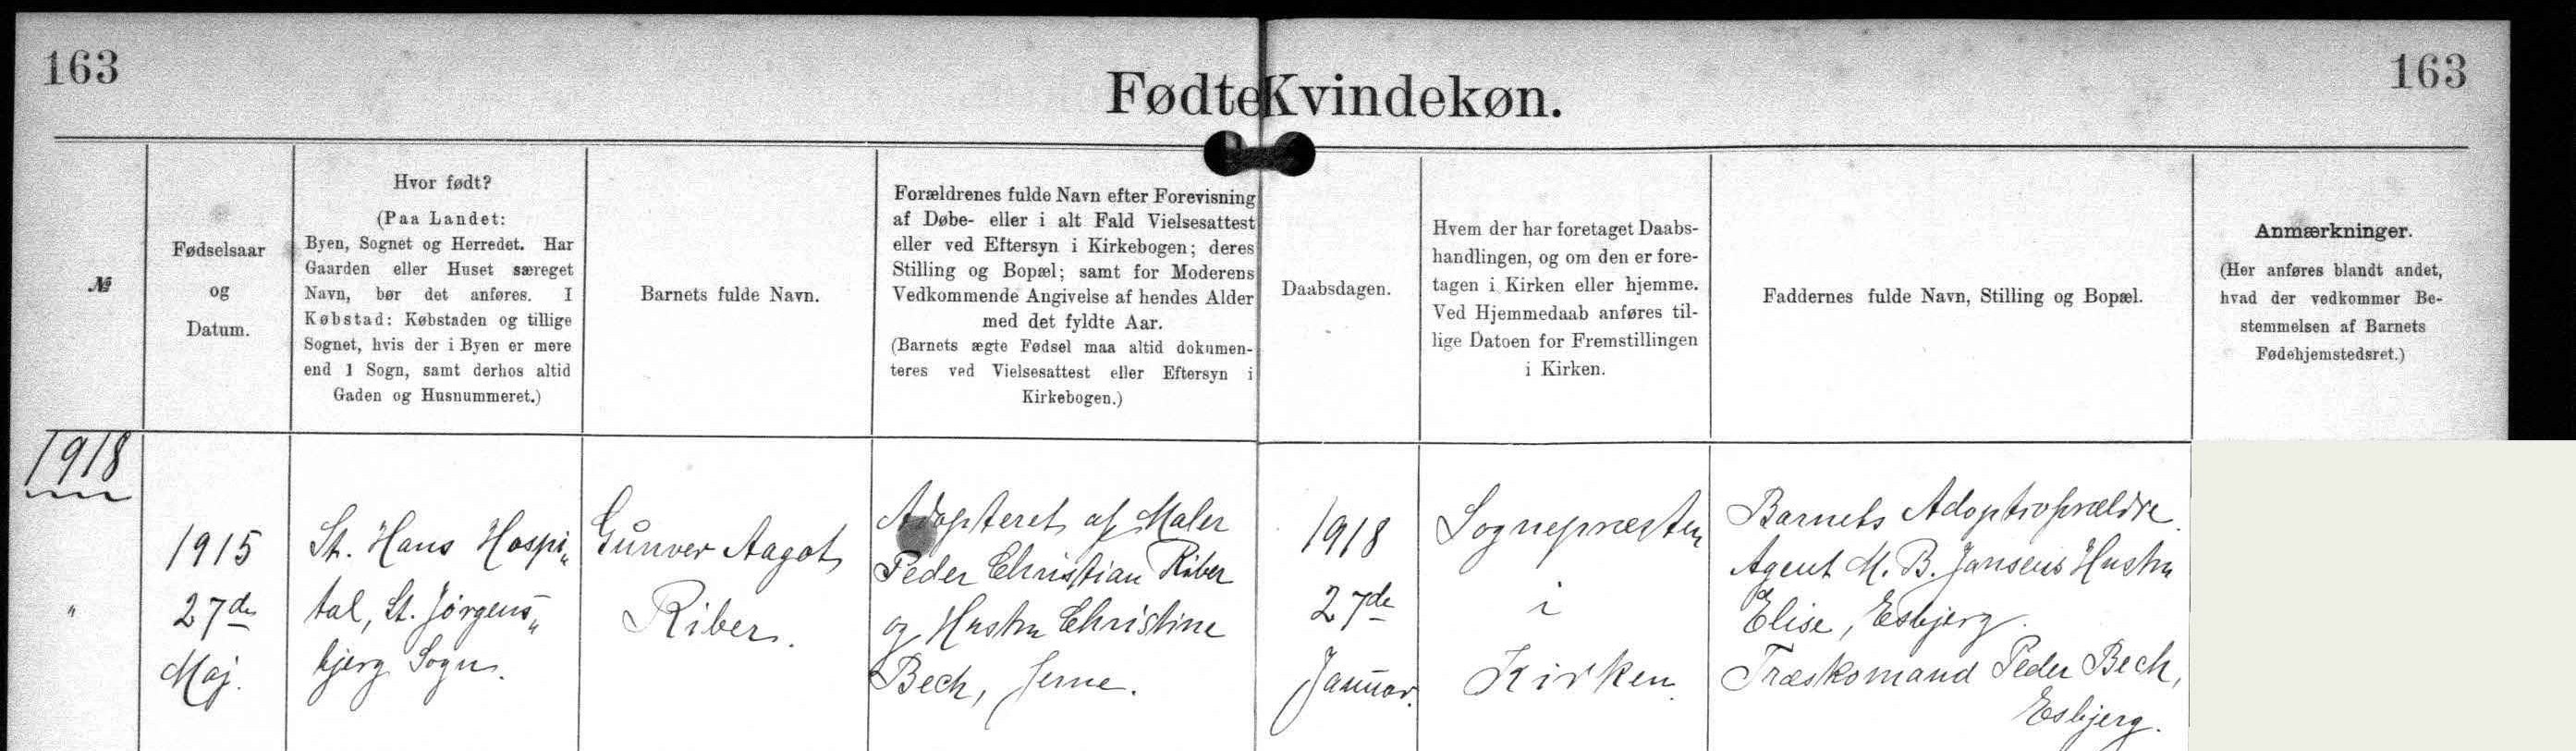 163
163
Fødte Kvindekøn.
№
Fødselsaar
og
Datum.
Hvor født?
(Paa Landet:
Byen, Sognet og Herredet. Har
Gaarden eller Huset særeget
Navn, bør det anføres. I
Købstad: Købstaden og tillige
Sognet, hvis der i Byen er mere
end 1 Sogn, samt derhos altid
Gaden og Husnummeret.)
Barnets fulde Navn.
Forældrenes fulde Navn efter Forevisning
af Døbe- eller i alt Fald Vielsesattest
eller ved Eftersyn i Kirkebogen; deres
Stilling og Bopæl; samt for Moderens
Vedkommende Angivelse af hendes Alder
med det fyldte Aar.
(Barnets ægte Fødsel maa altid dokumen-
teres ved Vielsesattest eller Eftersyn i
Kirkebogen.)
Daabsdagen.
Hvem der har foretaget Daabs-
handlingen, og om den er fore-
tagen i Kirken eller hjemme.
Ved Hjemmedaab anføres til-
lige Datoen for Fremstillingen
i Kirken.
Faddernes fulde Navn, Stilling og Bopæl.
Anmærkninger.
(Her anføres blandt andet,
hvad der vedkommer Be-
stemmelsen af Barnets
Fødehjemstedsret.)
1918
"
1915
27de
Maj.
St. Hans Hospi„
tal, St. Jørgens„
bjerg Sogn.
Gunver Aagot
Riber.
Adopteret af Maler
Peder Christian Riber
og Hustru Christine
Bech, Jerne.
1918
27de
Januar.
Sognepræsten
i
Kirken.
Barnets Adoptivforældre.
Agent M. B. Jansens Hustru
Elise, Esbjerg.
Træskomand Peder Bech,
Esbjerg.